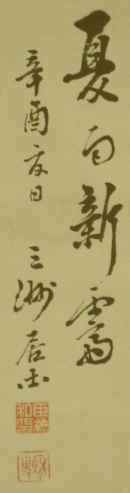 夏雨新霽
辛酉夏日
三洲居士